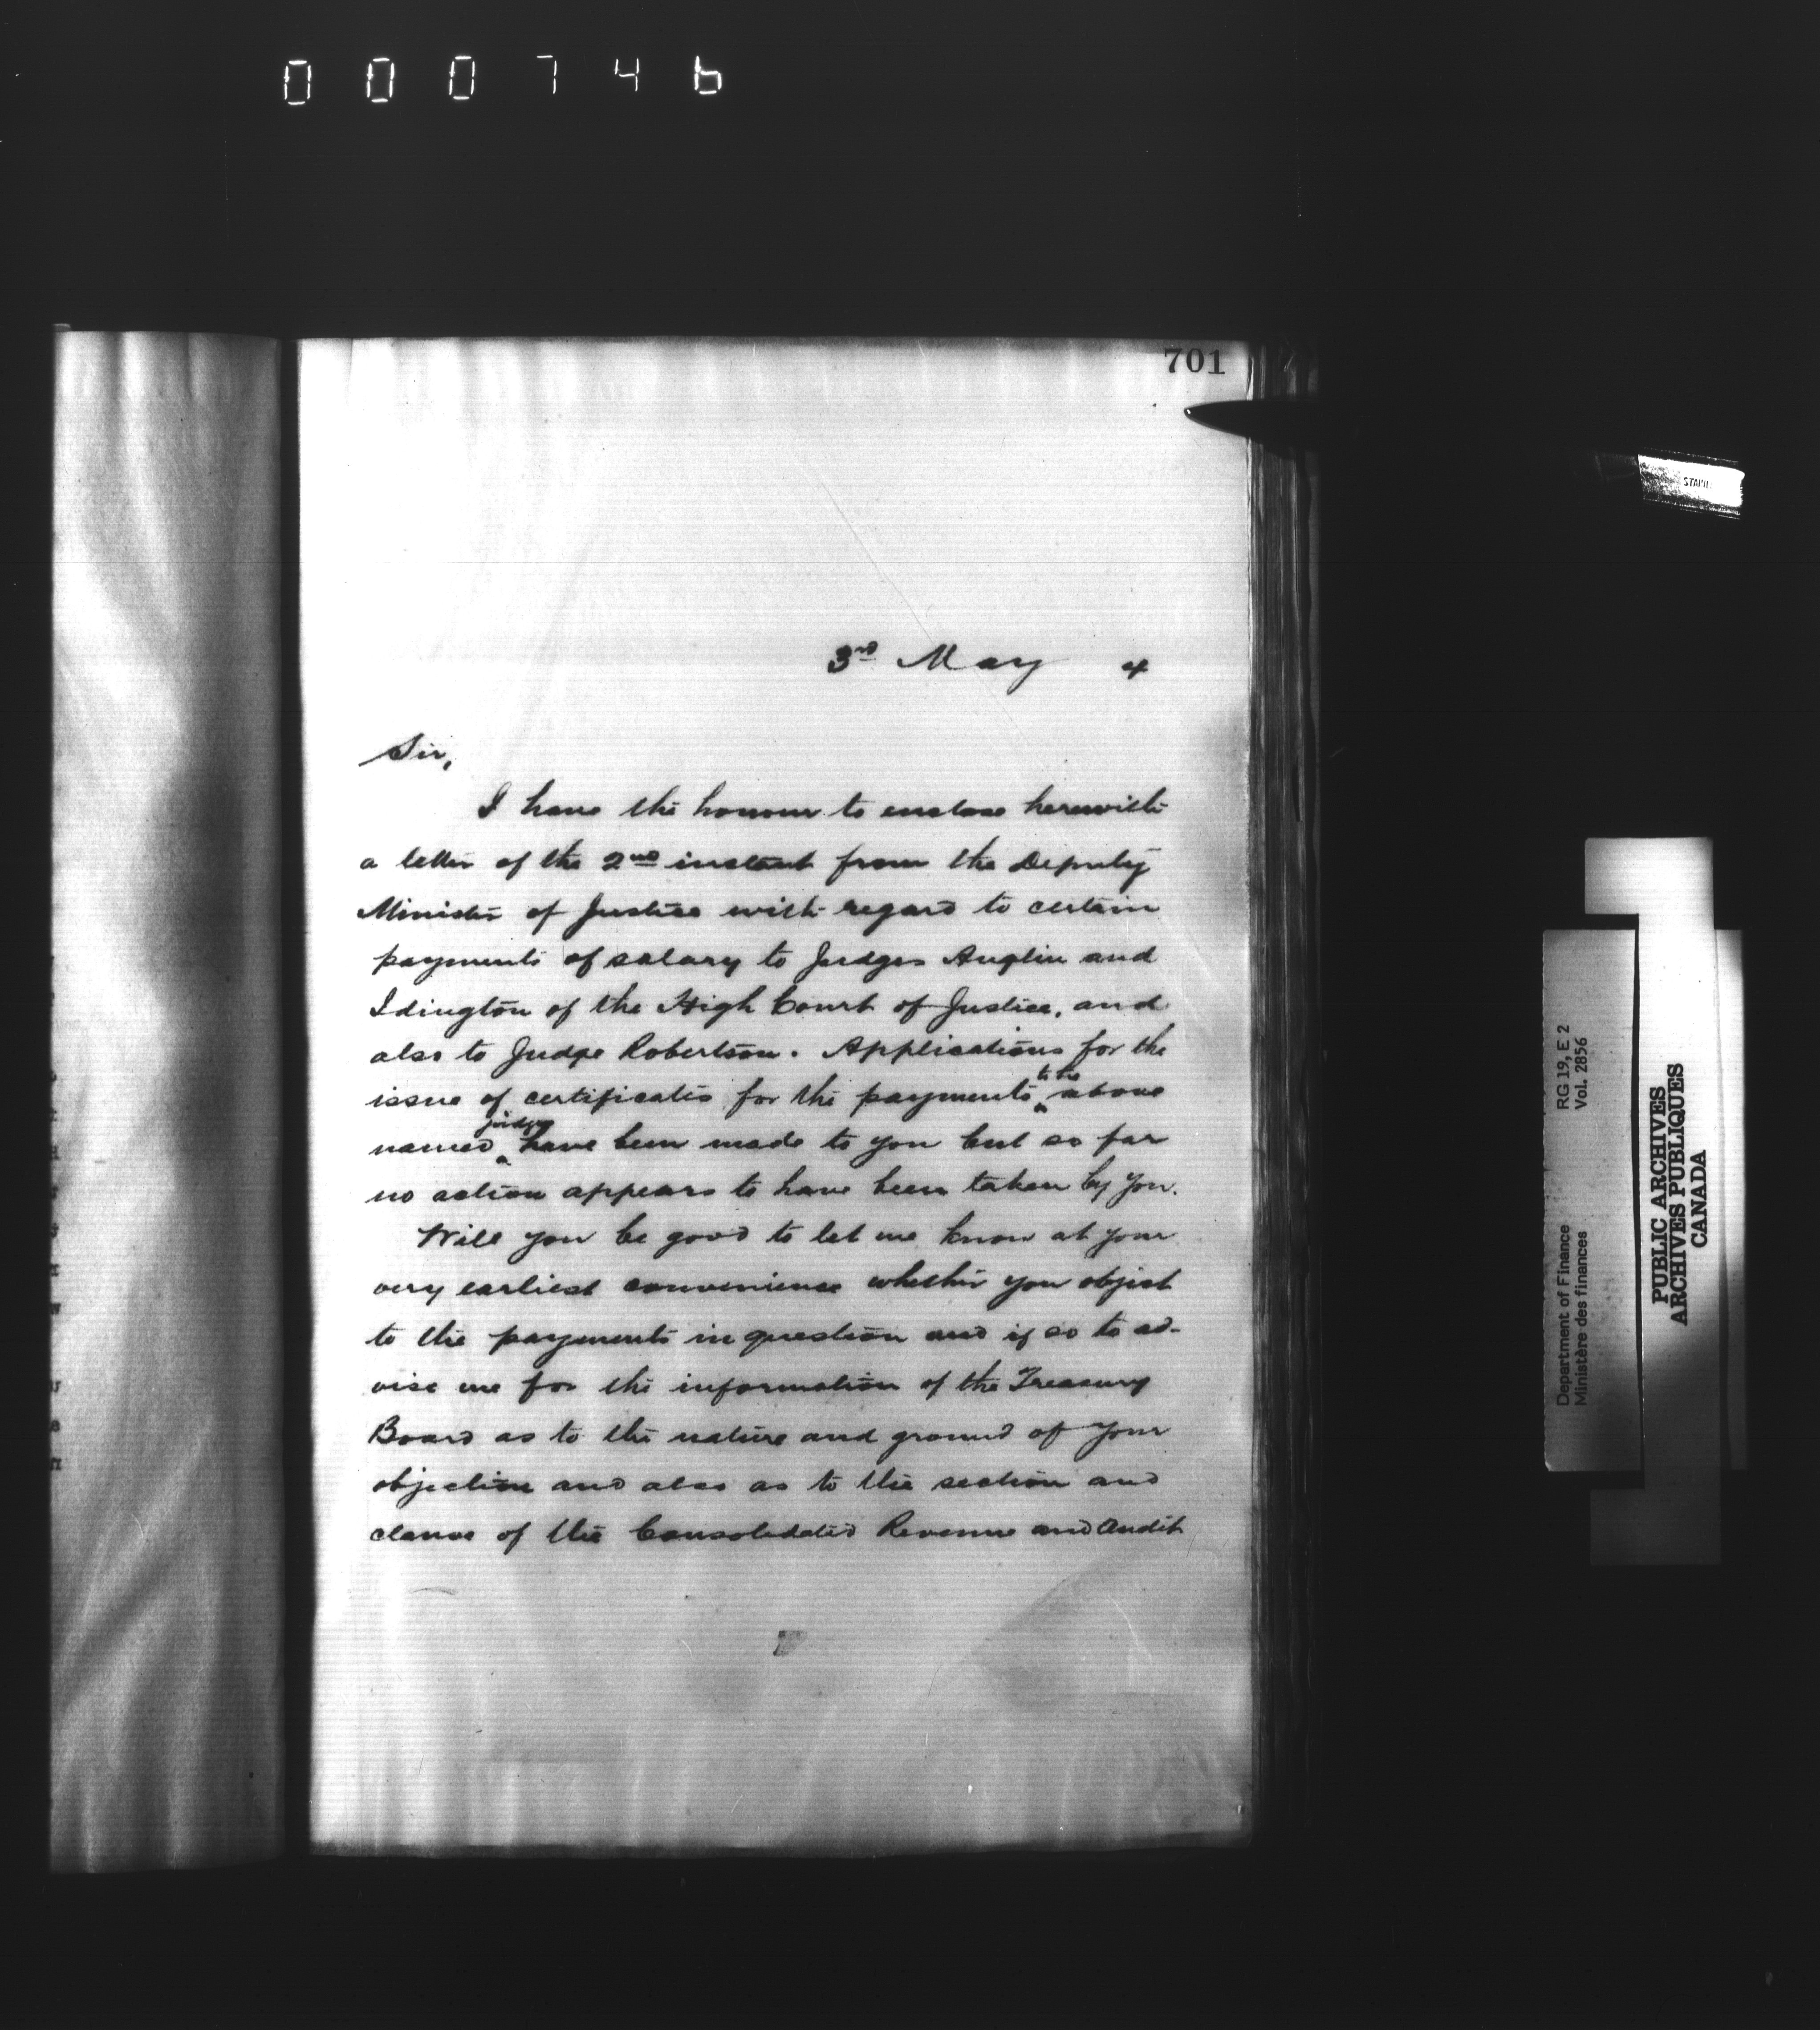 000746
701
3rd May 4
Sir,
I have the honour to enclose herewith
a letter of the 2nd instant from the Deputy
Minister of Justice with regard to certain
payments of salary to Judges Anglin and
Idington of the High Court of Justice, and
also to Judge Robertson. Applications for the
issue of certificates for the payments to the above
named judges have been made to you but so far
no action appears to have been taken by you.
Will you be good to let me know at your
very earliest convenience whether you object
to the payments in question and if so to ad-
vise me for the information of the Treasury
Board as to the nature and ground of your
objection and also as to the section and
clause of the Consolidated Revenue and Audit
Department of Finance RG 19, E 2
Ministère des finances Vol. 2856
PUBLIC ARCHIVES
ARCHIVES PUBLIQUES
CANADA